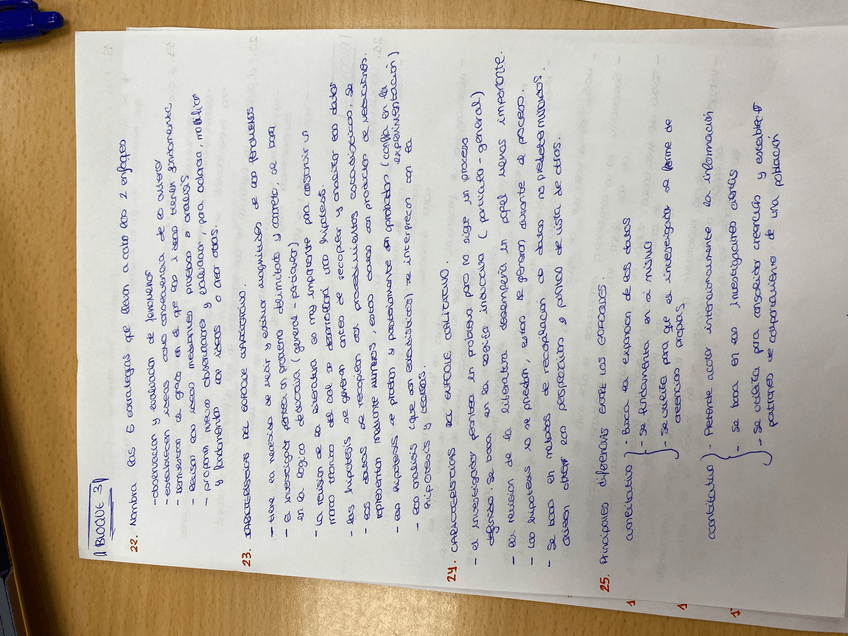 BLOQUE 3
22. Nombra las 5 estrategias que llevan a cabo los 2 enfoques
- observación y evaluación de fenómenos
- establecen ideas como consecuencia de lo anterior
- demuestran el grado en el que las ideas tienen fundamento
- Revisan las ideas mediante pruebas o análisis
- proponen nuevas observaciones y evaluaciones, para aclarar, modificar
y fundamentar las ideas o crear otras.
23. CARACTERÍSTICAS DEL ENFOQUE CUANTITATIVO.
- tiene la necesidad de medir y estimar magnitudes de los fenómenos
- el investigador plantea un problema delimitado y concreto, se basa
en la lógica deductiva (general - particular)
- la revisión de la literatura es muy importante para construir un
marco teórico del cual se desarrollará una hipótesis.
- las hipótesis se generan antes de recopilar y analizar los datos
- los datos se recopilan con procedimientos estandarizados, se
representan mediante números, estos casos son producto de mediciones.
- las hipótesis se prueban y posteriormente son aprobadas (confía en la
experimentación)
- los análisis (que son estadísticos) se interpretan con la
hipótesis y teoría.
24. CARACTERÍSTICAS DEL ENFOQUE CUALITATIVO.
- el investigador plantea un problema pero no sigue un proceso
definido. Se basa en la lógica inductiva (particular - general)
- la revisión de la literatura desempeña un papel menos importante.
- Las hipótesis no se prueban, estas se generan durante el proceso.
- Se basa en métodos de recopilación de datos no predeterminados.
deben obtener las perspectivas y puntos de vista de otros.
25. Principales diferencias entre los enfoques.
cualitativo - Busca la expansión de los datos
- se fundamenta en sí mismo
- Se utiliza para que el investigador se forme de
creencias propias
cuantitativo - Pretende acotar intencionalmente la información
- se basa en las investigaciones previas
- Se utiliza para consolidar creencias y establecer
patrones de comportamiento de una población